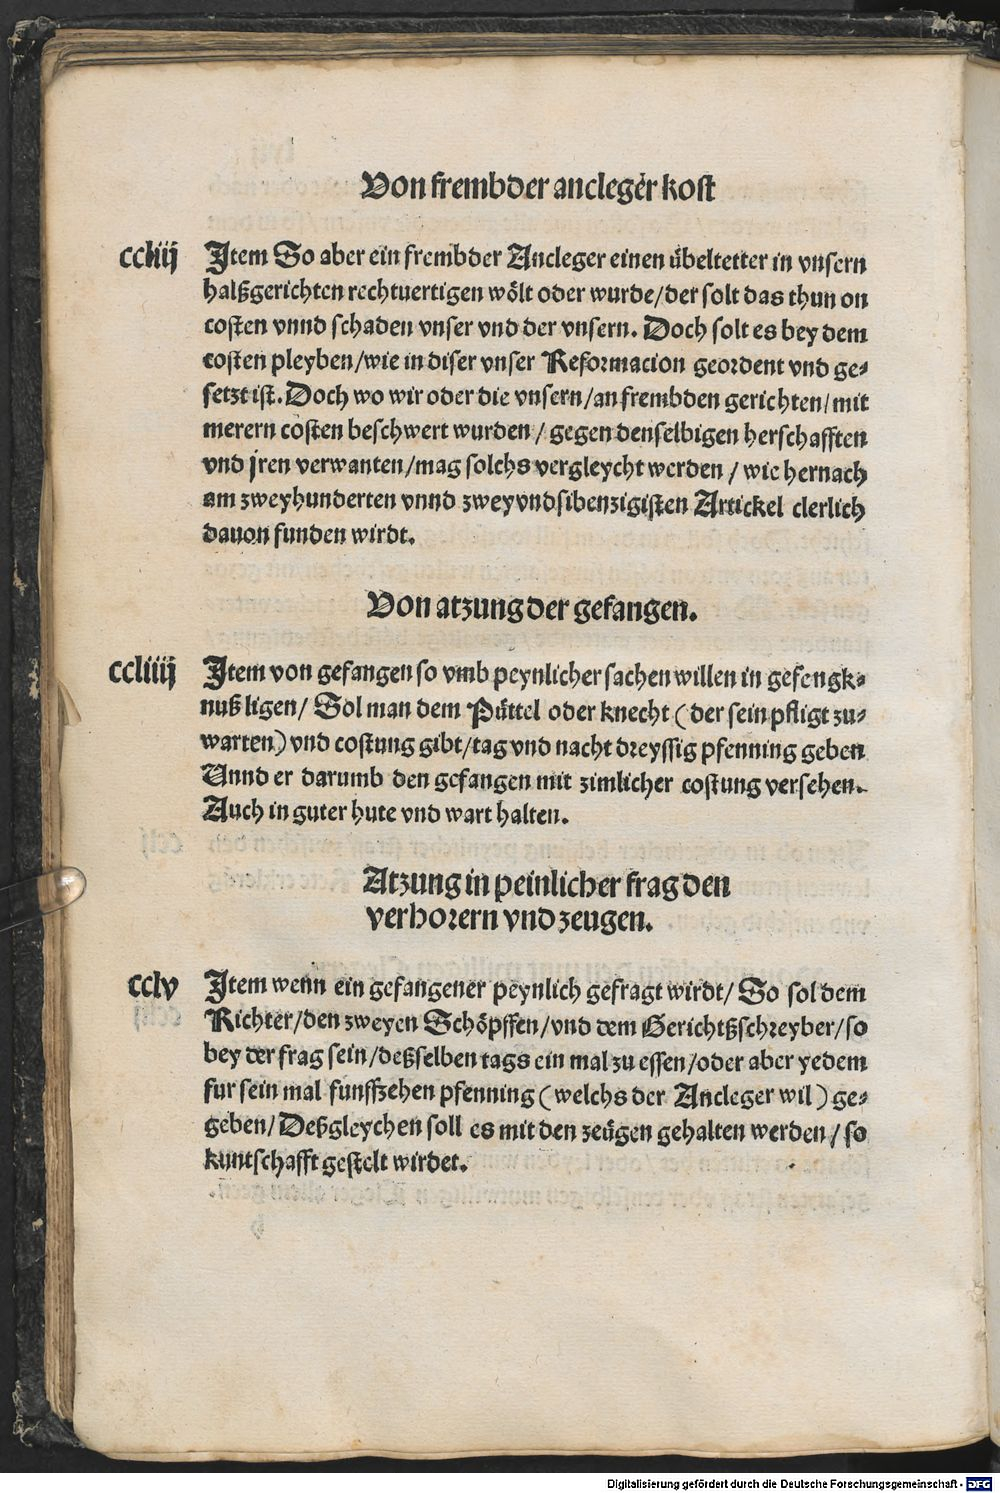 Von frembder ancleger kost
ccliij
Item So aber ein frembder Ancleger einen übeltetter in vnsern
halßgerichten rechtuertigen wölt oder wurde/der solt das thun on
costen vnnd schaden vnser vnd der vnsern. Doch solt es bey dem
costen pleyben/wie in diser vnser Reformacion geordent vnd ge⸗
setzt ist. Doch wo wir oder die vnsern/an frembden gerichten/mit
merern costen beschwert wurden/gegen denselbigen herschafften
vnd jren verwanten/mag solchs vergleycht werden/wie hernach
am zweyhunderten vnnd zweyvndsibenzigisten Artickel clerlich
dauon funden wirdt.
Von atzung der gefangen.
ccliiij
Item von gefangen so vmb peynlicher sachen willen in gefengk⸗
nuß ligen/ Sol man dem Püttel oder knecht (der sein pfligt zu⸗
warten) vnd costung gibt/tag vnd nacht dreyssig pfenning geben
Vnnd er darumb den gefangen mit zimlicher costung versehen.
Auch in guter hute vnd wart halten.
Atzung in peinlicher frag den
verhorern vnd zeugen.
cclv
Item wenn ein gefangener peynlich gefragt wirdt/ So sol dem
Richter/den zweyen Schöpffen/vnd dem Gerichtßschreyber/so
bey der frag sein/deßselben tags ein mal zu essen/oder aber yedem
fur sein mal funffzehen pfenning (welchs der Ancleger wil) ge⸗
geben/ Deßgleychen soll es mit den zeügen gehalten werden/so
kuntschafft gestelt wirdet.
Digitalisierung gefördert durch die Deutsche Forschungsgemeinschaft - DFG